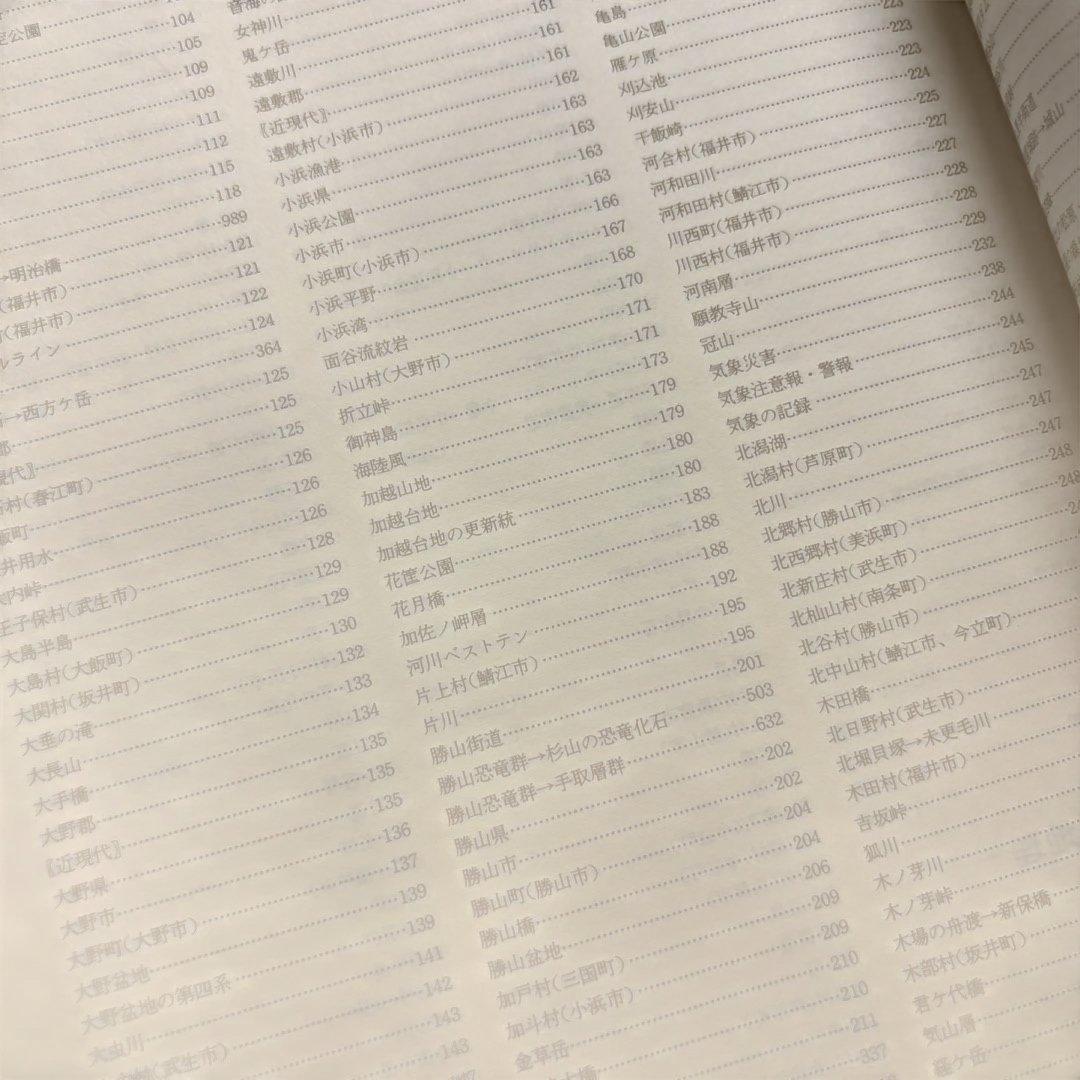 定公園
104
105
109
109
111
112
115
118
→明治橋 989
(福井市) 121
(福井市) 121
ルライン 122
124
→西方ケ岳 364
郡 125
現代〙 125
村(春江町) 125
飯町 126
井用水 126
内峠 126
王子保村(武生市) 128
大島半島 129
大島村(大飯町) 129
大関村(坂井町) 130
大垂の滝 132
大長山 133
大手橋 134
大野郡 135
〘近現代〙 135
大野県 135
大野市 136
大野町(大野市) 137
大野盆地 139
大野盆地の第四系 139
大虫川 141
(武生市) 142
143
143
女神川
鬼ケ岳
遠敷川 161
遠敷郡 161
〘近現代〙 161
遠敷村(小浜市) 162
小浜漁港 163
小浜県 163
小浜公園 163
小浜市 163
小浜町(小浜市) 166
小浜平野 167
小浜湾 168
面谷流紋岩 170
小山村(大野市) 171
折立峠 171
御神島 173
海陸風 179
加越山地 179
加越台地 180
加越台地の更新統 180
花筐公園 183
花月橋 188
加佐ノ岬層 188
河川ベストテン 192
片上村(鯖江市) 195
片川 195
勝山街道 201
勝山恐竜群→杉山の恐竜化石 503
勝山恐竜群→手取層群 632
勝山県 202
勝山市 202
勝山町(勝山市) 204
勝山橋 204
勝山盆地 206
加戸村(三国町) 209
加斗村(小浜市) 209
金草岳 210
210
211
337
亀島
亀山公園
雁ケ原
刈込池 223
刈安山 223
干飯崎 224
河合村(福井市) 225
河和田川 227
河和田村(鯖江市) 227
川西町(福井市) 228
川西村(福井市) 228
河南層 229
願教寺山 232
冠山 238
気象災害 244
気象注意報・警報 244
気象の記録 245
北潟湖 247
北潟村(芦原町) 247
北川 247
北郷村(勝山市) 248
北西郷村(美浜町) 248
北新庄村(武生市)
北杣山村(南条町)
北谷村(勝山市)
北中山村(鯖江市、今立町)
木田橋
北日野村(武生市)
北堀貝塚→未更毛川
木田村(福井市)
吉坂峠
狐川
木ノ芽川
木ノ芽峠
木場の舟渡→新保橋
木部村(坂井町)
君ケ代橋
気山層
経ケ岳